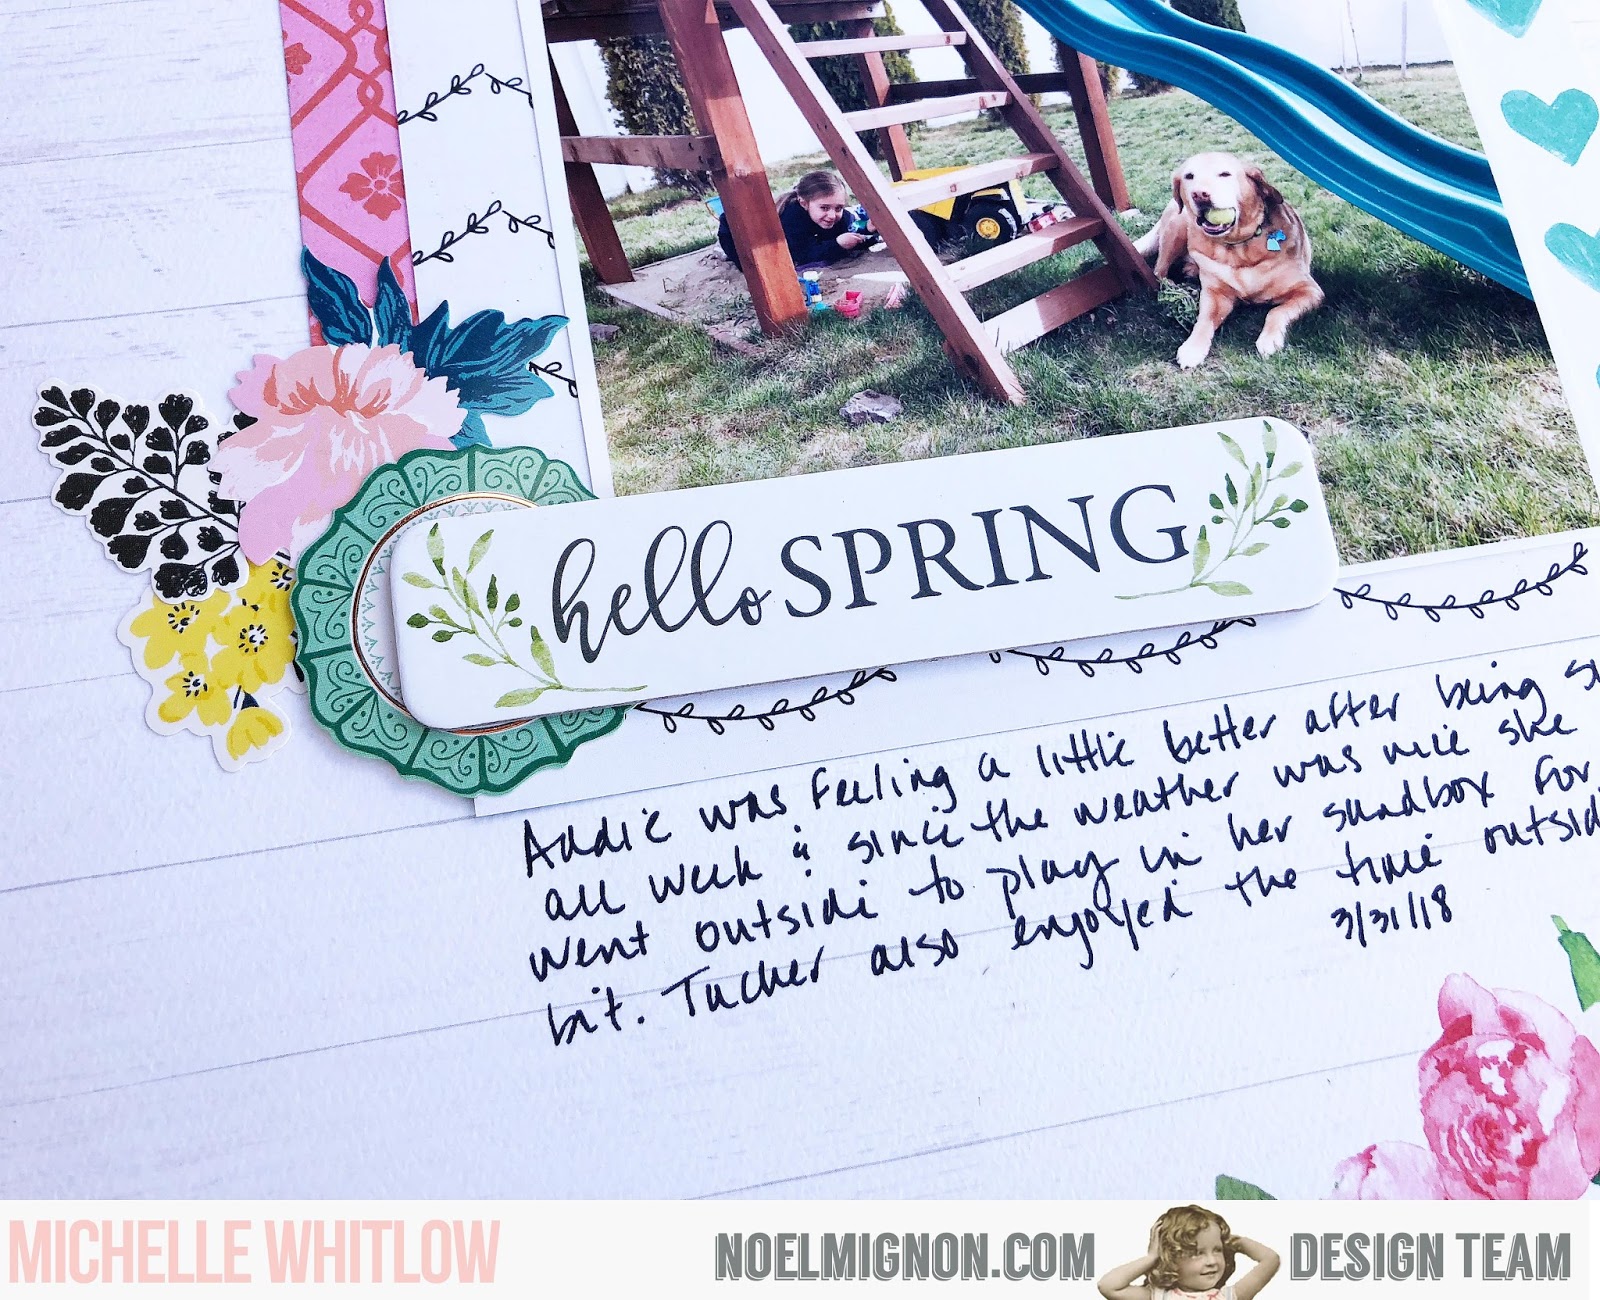 hello SPRING
Addie was feeling a little better after being
all week & since the weather was nice she
went outside to play in her sandbox for
bit. Tucker also enjoyed the time
3/31/18
MICHELLE WHITLOW
NOELMIGNON.COM DESIGN TEAM